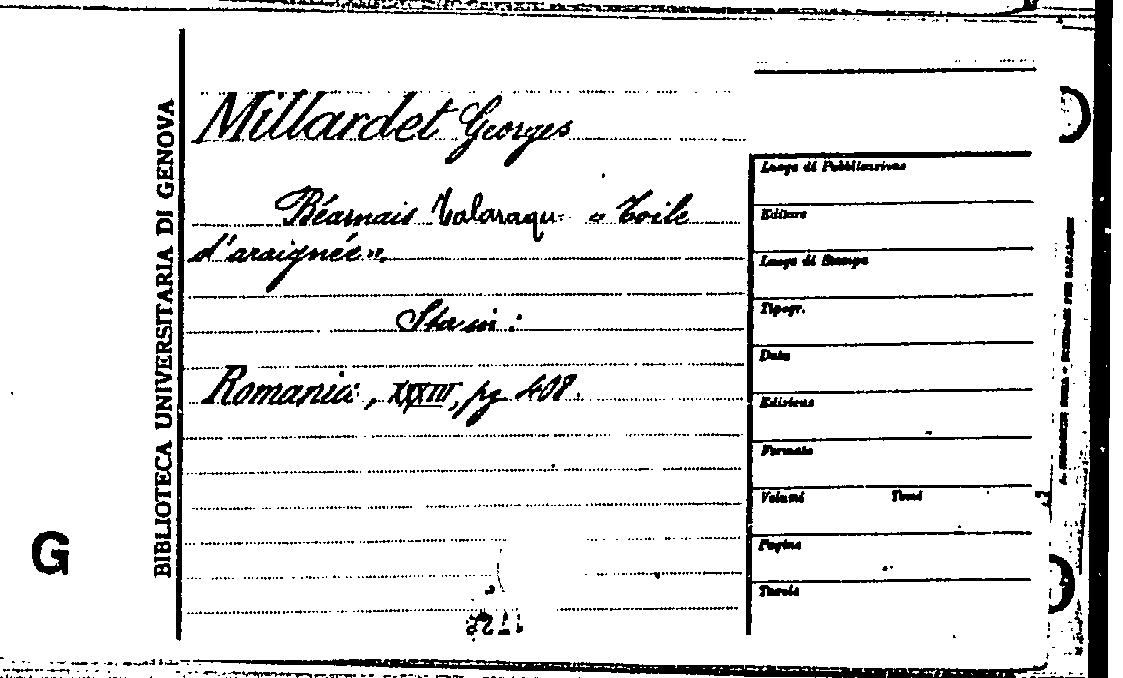 BIBLIOTECA UNIVERSITARIA DI GENOVA
G
Millardet Georges
Béarnais Talaraqu- « Toile
d'araignée ».
Sta in:
Romania, XXXIII, pg 408.
Luogo di Pubblicazione
Editore
Luogo di Stampa
Tipogr.
Data
Edizione
Formato
Volumi Tomi
Pagine
Tavole